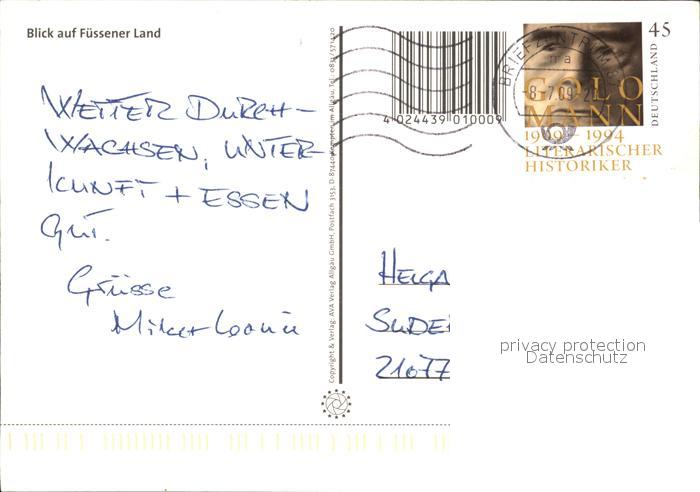 Blick auf Füssener Land
WETTER DURCH-
WACHSEN, UNTER-
KUNFT + ESSEN
GUT.
Grüsse
4 024439 010009
BRIEFZENTRUM
-8.-7.09
45
DEUTSCHLAND
GOLO
MANN
1909 – 1994
LITERARISCHER
HISTORIKER
Copyright & Verlag: AVA Verlag Allgäu GmbH, Postfach 3153, D-87440 Kempten im Allgäu, Tel.: 0831/
HELGA
21077
privacy protection
Datenschutz